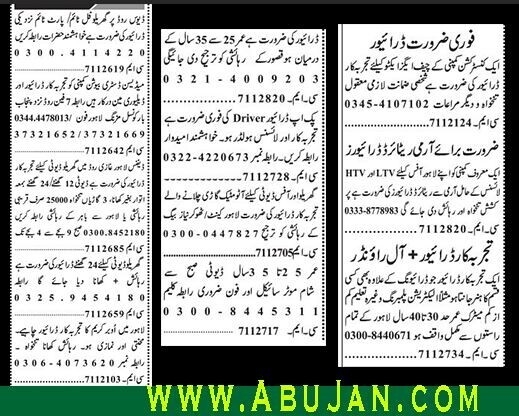 فوری ضرورت ڈرائیور
ایک کنسٹرکشن کمپنی کے چیف ایگزیکٹو کیلئے تجربہ کار
ڈرائیور کی ضرورت ہے شخصی ضمانت لازمی معقول
تنخواہ و دیگر مراعات 0345-4107102
سی۔ایم۔7112124
ضرورت برائے آرمی ریٹائرڈ ڈرائیورز
ایک معروف کمپنی کو اپنے آفس کیلئے LTV اور HTV
لائسنس کے حامل آرمی سے ریٹائرڈ ڈرائیورز کی ضرورت ہے پر
کشش تنخواہ اور رہائش دی جائے گی 0333-8778983
سی۔ایم۔7112820
تجربہ کار ڈرائیور + آل راؤنڈر
ایک تجربہ کار ڈرائیور جو ڈرائیونگ کے علاوہ بھی کسی
قسم کا ہنر جانتا ہو مثلاً الیکٹریشن پلمبرنگ وغیرہ تعلیم کم
از کم میٹرک عمر حد 30 تا 40 سال لاہور کے تمام
راستوں سے مکمل واقف ہو 0300-8440671
سی۔ایم۔7112734
ڈرائیور کی ضرورت ہے عمر 25 سے 35 سال کے
درمیان ہو قصور کے رہائشی کو ترجیح دی جائیگی
0321-4009203
سی۔ایم۔7112820
پک اپ ڈرائیور Driver کی فوری ضرورت ہے
تجربہ کار اور لائسنس ہولڈر ہو۔ خواہشمند امیدوار
رابطہ کریں۔ رابطہ نمبر 0322-4220673
سی۔ایم۔7112728
گھریلو اور آفس ڈیوٹی کیلئے آٹومیٹک گاڑی چلانے والے
تجربہ کار ڈرائیور کی ضرورت لاہور کینٹ / ٹھوکر نیاز بیگ
کے رہائشی کو ترجیح 0300-0447827
سی۔ایم۔7112705
عمر 25 تا 35 سال ڈیوٹی صبح سے
شام موٹر سائیکل اور فون ضروری رابطہ کلیم
0300-8445311
سی۔ایم۔7112717
ڈیوس روڈ پر گھریلو فل ٹائم / پارٹ ٹائم نزدیکی
ڈرائیور کی ضرورت ہے خواہشمند حضرات رابطہ کریں
0300.4114220
سی ایم۔7112619
میڈیسن ڈسٹری بیوشن کمپنی کو تجربہ کار ڈرائیور اور
ڈیلیوری مین درکار ہیں رابطہ
لاہور فون 0344.4478013/
37321652/37321669
سی ایم۔7112642
ڈیفنس لاہور غازی روڈ میں گھریلو ڈیوٹی کیلئے تجربہ کار
ڈرائیور کی ضرورت ہے ڈیوٹی 12 گھنٹے / 24 گھنٹے جمعہ
اتوار تنخواہ 25000 صرف قریبی
رہائشی یا لاہور سے باہر کے رہائشی رابطہ کریں
0300.8452180 صبح 9 بجے سے 4 بجے تک
سی ایم۔7112685
گھریلو ڈیوٹی کیلئے 24 گھنٹے ڈرائیور کی ضرورت ہے
رہائش + کھانا دیا جائے گا رابطہ
0325.9454180
سی ایم۔7112659
لاہور میں اوبر کریم کا تجربہ کار ڈرائیور چاہیے۔
محنتی اور نمازی ہو۔ رہائش کھانا تنخواہ۔
رابطہ نمبر 0306-4073620
سی ایم۔7112103
WWW.ABUJAN.COM